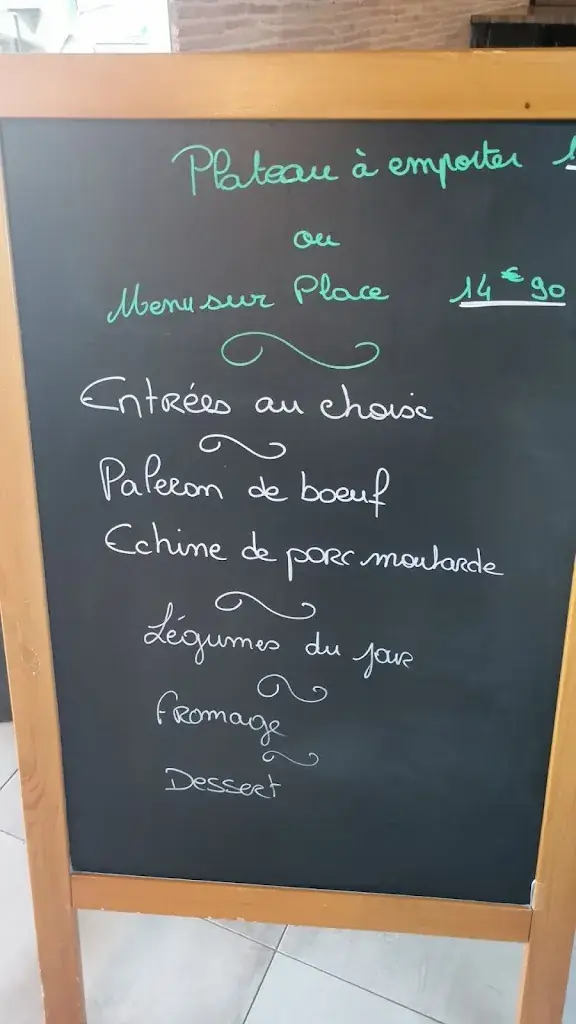 Plateau à emporter
ou
Menu sur Place 14€90
Entrées au choix
Paleron de boeuf
Echine de porc moutarde
Légumes du jour
Fromage
Dessert